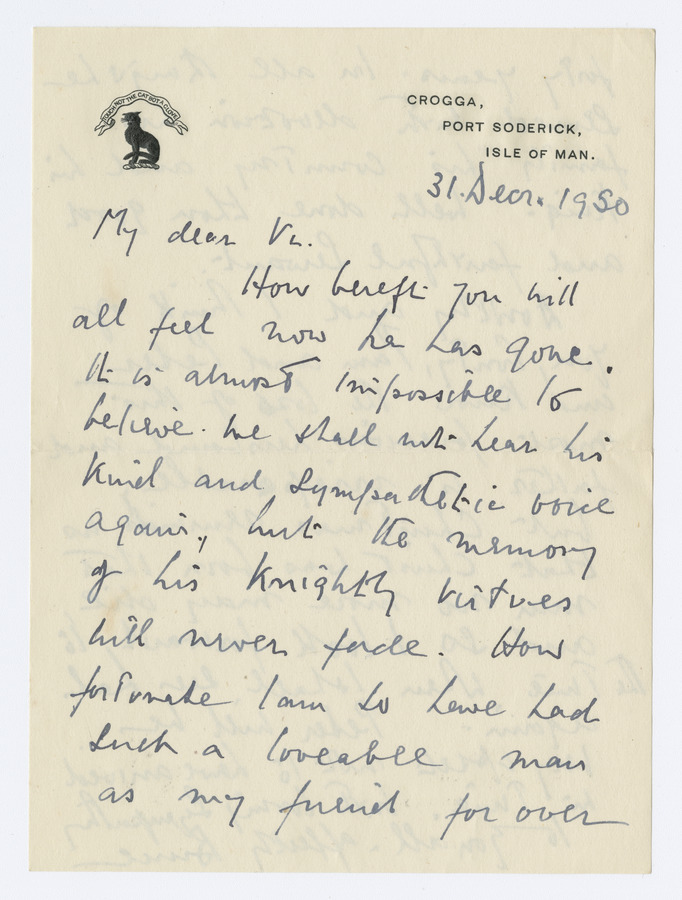 TOUCH NOT THE CAT BOT A GLOVE
CROGGA,
PORT SODERICK,
ISLE OF MAN.
31. Decr. 1950
My dear Vi.
How bereft you will
all feel now he has gone.
It is almost impossible to
believe. We shall not hear his
kind and sympathetic voice
again, but the memory
of his knightly virtues
will never fade. How
fortunate I am to have had
such a loveable man
as my friend for over